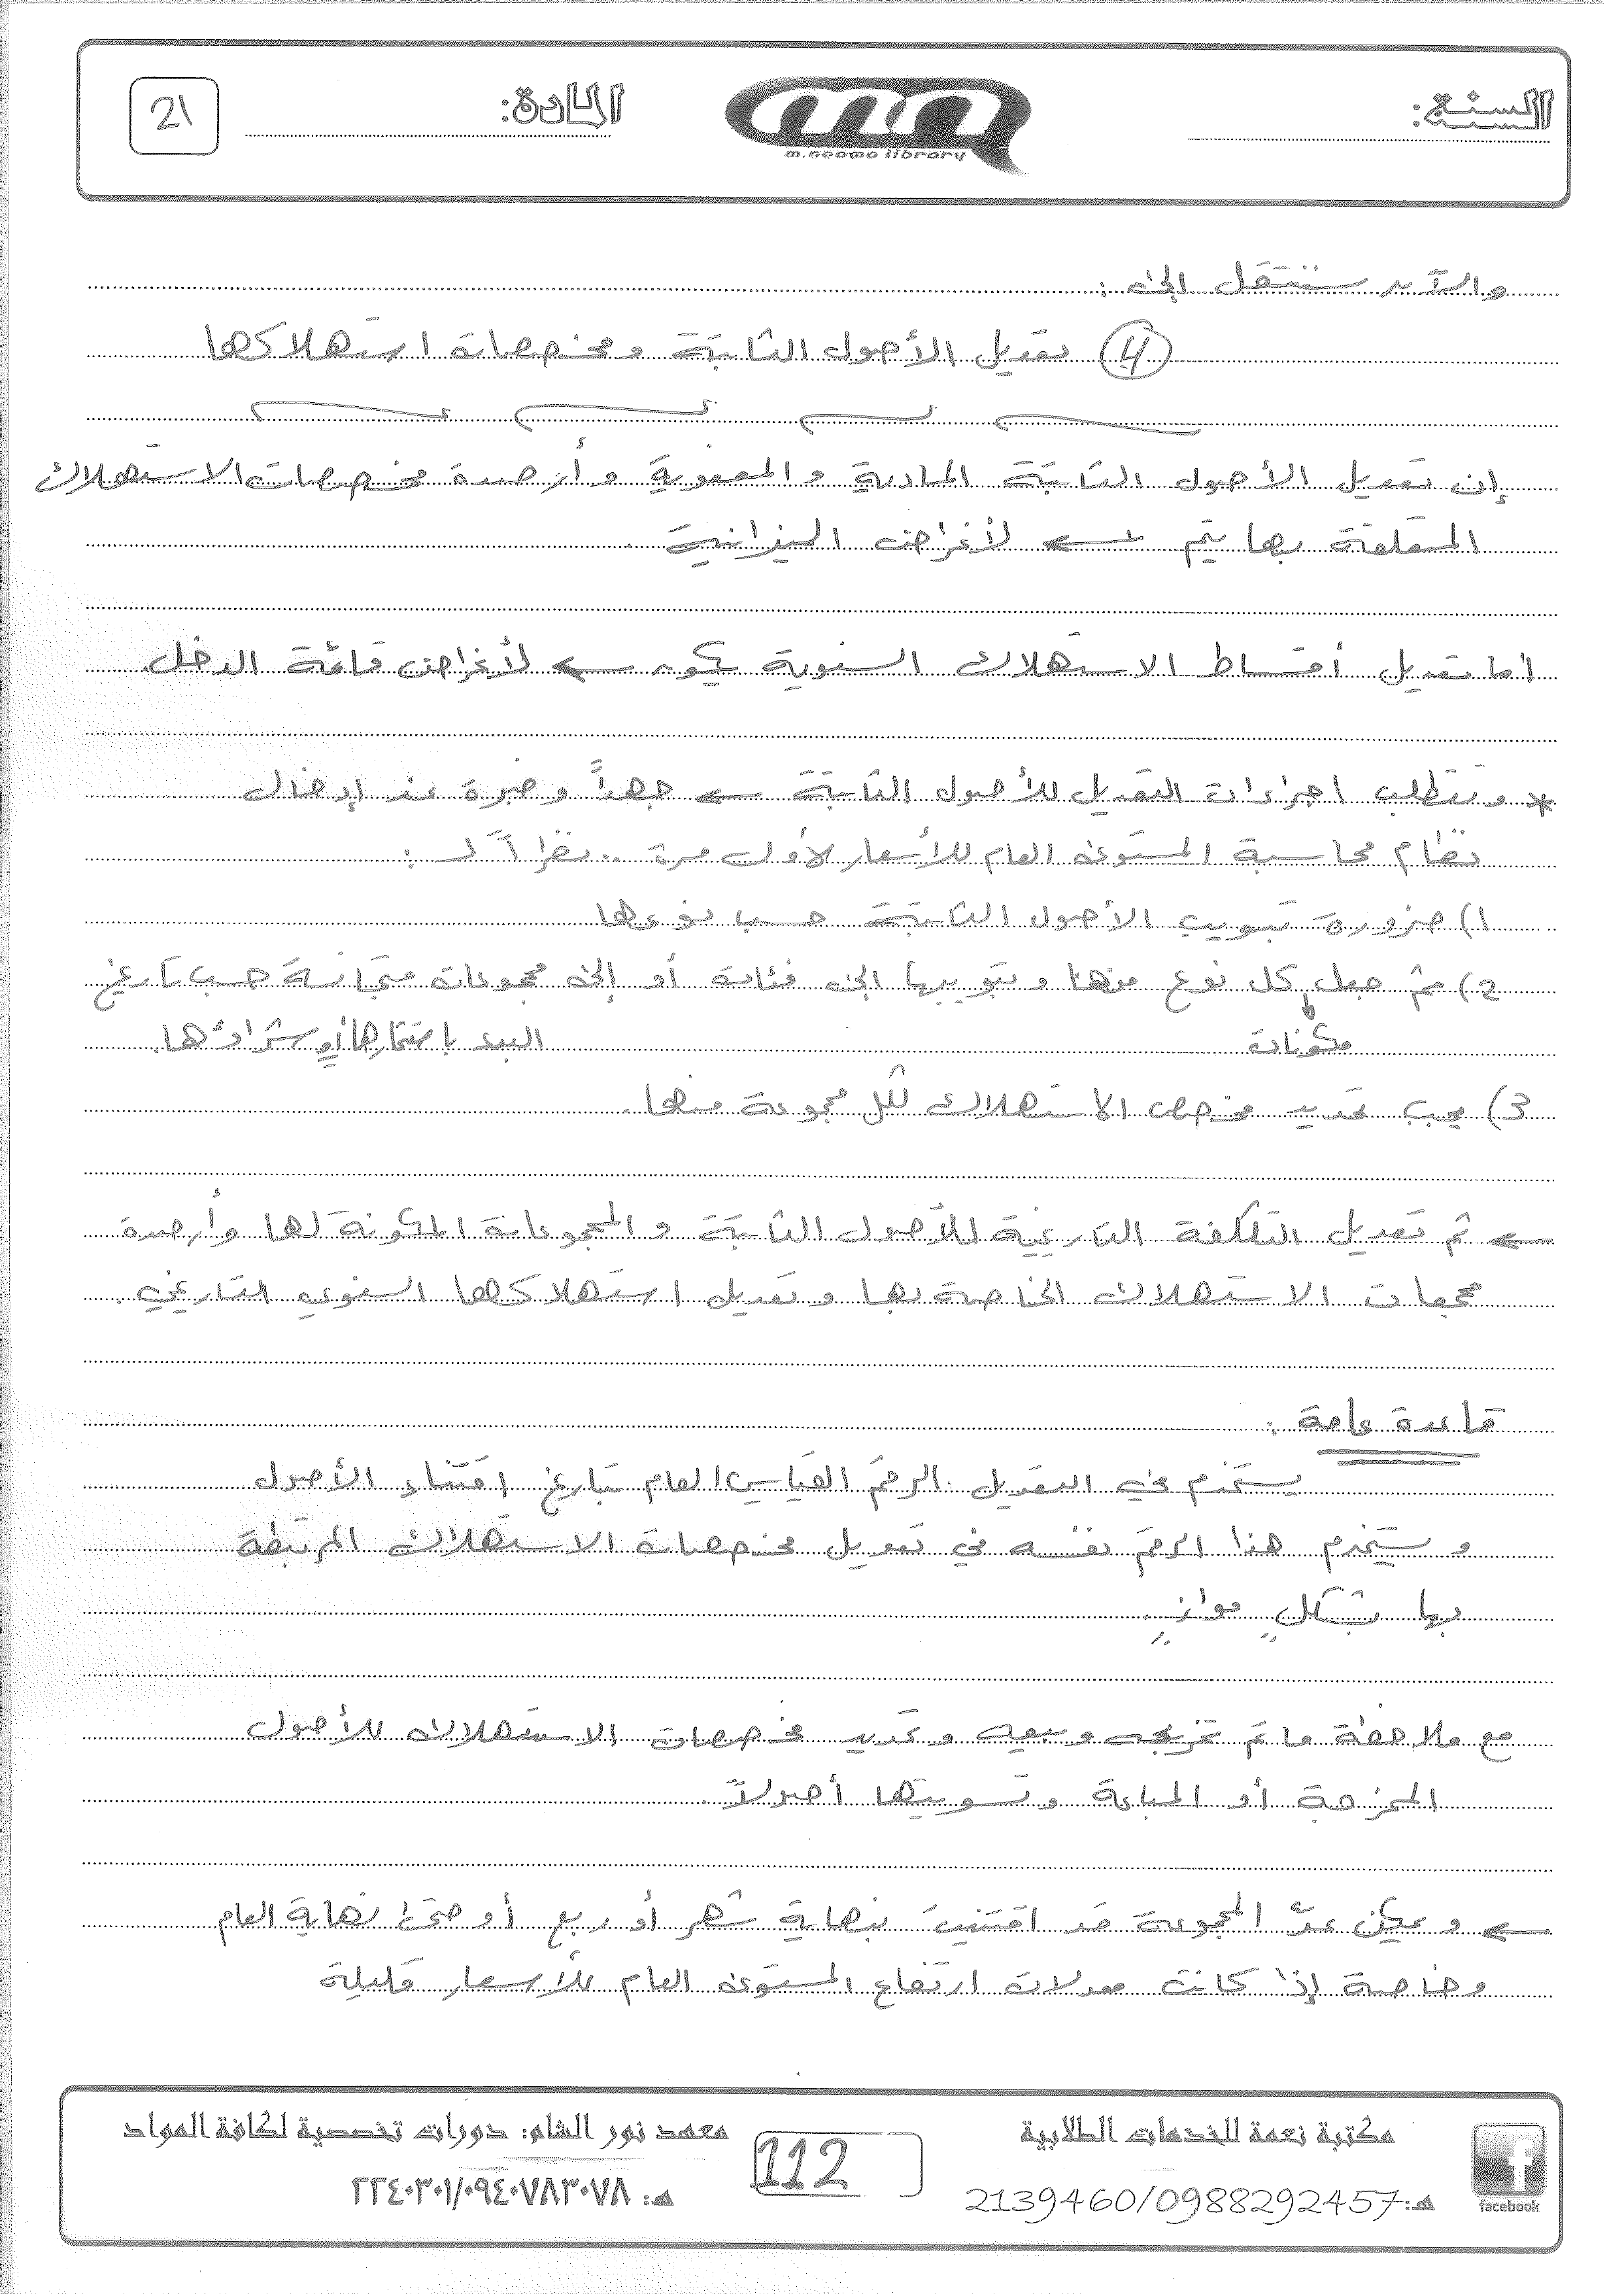 السنة:
المادة:
21
m.neama library
والآن سننتقل إلى :
4 تعديل الأصول الثابتة ومخصصات استهلاكها
إن تعديل الأصول الثابتة المادية والمعنوية وأرصدة مخصصات الاستهلاك
المتعلقة بها يتم ← لأغراض الميزانية .
أما تعديل أقساط الاستهلاك السنوية يكون ← لأغراض قائمة الدخل
* وتتطلب اجراءات التعديل للأصول الثابتة ← جهداً وخبرة عند إدخال
نظام محاسبة المستوى العام للأسعار لأول مرة .. نظراً لـ :
1) ضرورة تبويب الأصول الثابتة حسب نوعها
2) ثم جعل كل نوع منها وتبويبها إلى فئات أو إلى مجموعات متجانسة حسب تاريخ
مكونات
البدء باستثمارها أو شرائها.
3) يجب تحديد مخصص الاستهلاك لكل مجموعة منها .
← ثم تعديل التكلفة التاريخية للأصول الثابتة والمجموعات المكونة لها وأرصدة
مجمعات الاستهلاك الخاصة بها وتعديل استهلاكها السنوي التاريخي .
قاعدة عامة :
يستخدم في التعديل الرقم القياسي العام بتاريخ اقتناء الأصول
ويستخدم هذا الرقم نفسه في تعديل مخصصات الاستهلاك المرتبطة
بها بشكلٍ موازٍ .
مع ملاحظة ما تم تخريجه وبيعه وتحديد مخصصات الاستهلاك للأصول
المخرجة أو المباعة وتسويتها أصولاً .
← ويمكن عدّ المجموعة قد اقتنيت بنهاية شهر أو ربع أو حتى نهاية العام
وخاصة إذا كانت معدلات ارتفاع المستوى العام للأسعار قليلة
مكتبة نعمة للخدمات الطلابية
هـ: 2139460/0988292457
facebook
112
معهد نور الشام: دورات تخصصية لكافة المواد
هـ: ٢٢٤٠٣٠١/٠٩٤٠٧٨٣٠٧٨